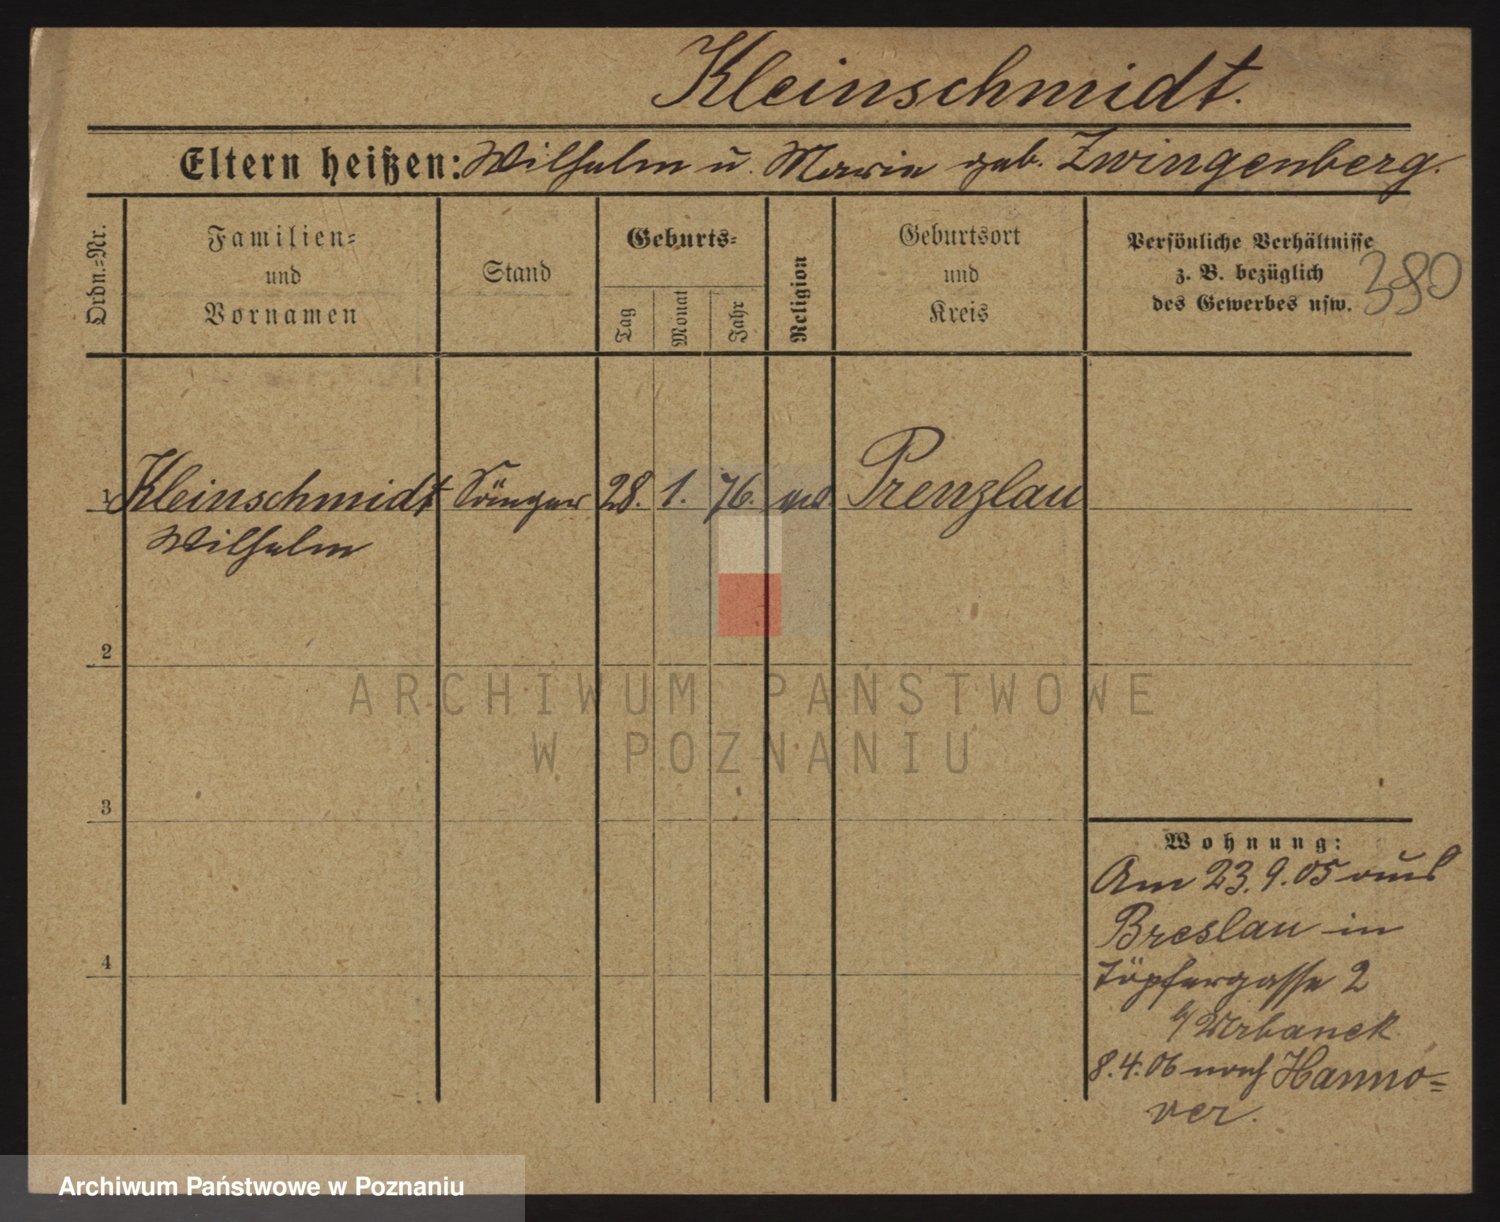 Kleinschmidt.
Eltern heißen: Wilhelm u. Marie geb. Zwingenberg.
Ordn.-Nr.
Familien-
und
Vornamen
Stand
Geburts-
Tag
Monat
Jahr
Religion
Geburtsort
und
Kreis
Persönliche Verhältnisse
z. B. bezüglich
des Gewerbes usw.
380
1 Kleinschmidt Sänger 28. 1. 76. ev. Prenzlau
Wilhelm
2
3
4
Wohnung:
Am 23.9.05 aus
Breslau in
Töpfergasse 2
b/ Urbanek
8.4.06 nach Hanno=
ver.
ARCHIWUM PAŃSTWOWE
W POZNANIU
Archiwum Państwowe w Poznaniu